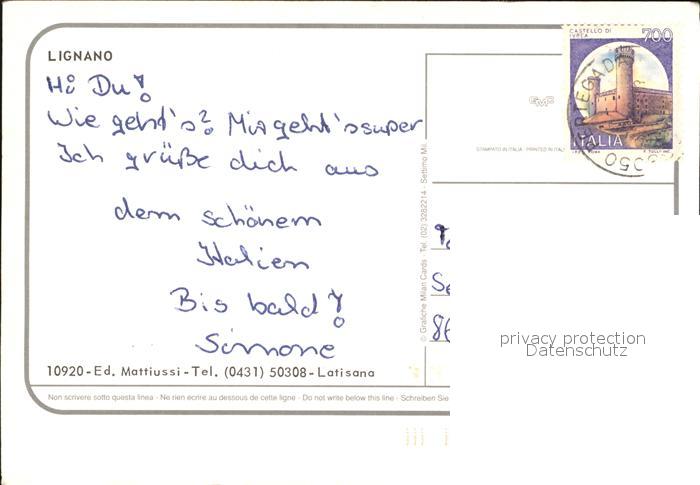 LIGNANO
Hi Du!
Wie geht's? Mir geht's super
Ich grüße dich aus
dem schönem
Italien
Bis bald!
Simone
10920-Ed. Mattiussi-Tel. (0431) 50308-Latisana
Non scrivere sotto questa linea - Ne rien ecrire au dessous de cette ligne - Do not write below this line - Schreiben Sie
© Grafiche Milan Cards - Tel. (02) 3282214 - Settimo Mil.
STAMPATO IN ITALIA - PRINTED IN ITAL
CASTELLO DI
IVREA
700
ITALIA
privacy protection
Datenschutz